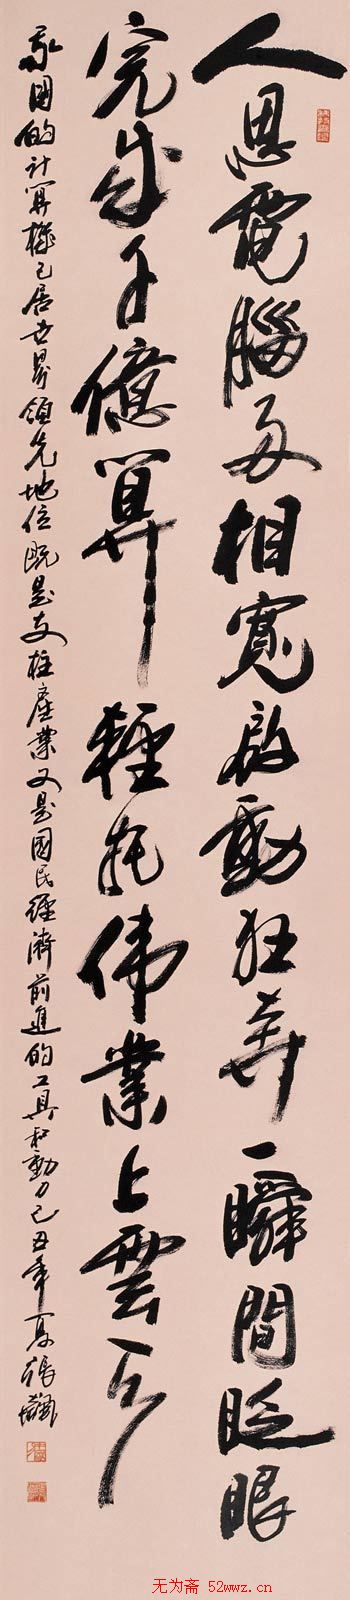 人恩電腦互相寬啟動狂奔一瞬間眨眼
完成千億算輕托伟業上雲天
我国的计算機已居世界领先地位既是支柱產業又是國民經濟前進的工具和動力己丑年夏張飆
无为斋 52wwz.cn